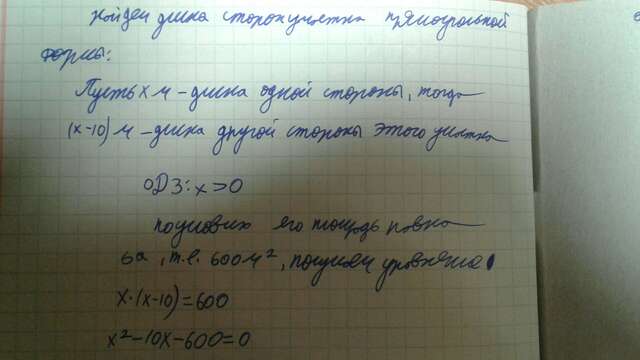 Найдем длина сторон участка прямоугольной
формы:
Пусть x м - длина одной стороны, тогда
(x-10) м - длина другой стороны этого участка
ОДЗ: x>0
по условию его площадь равна
6а, т.е. 600 м², получаем уравнение
x·(x-10)=600
x²-10x-600=0